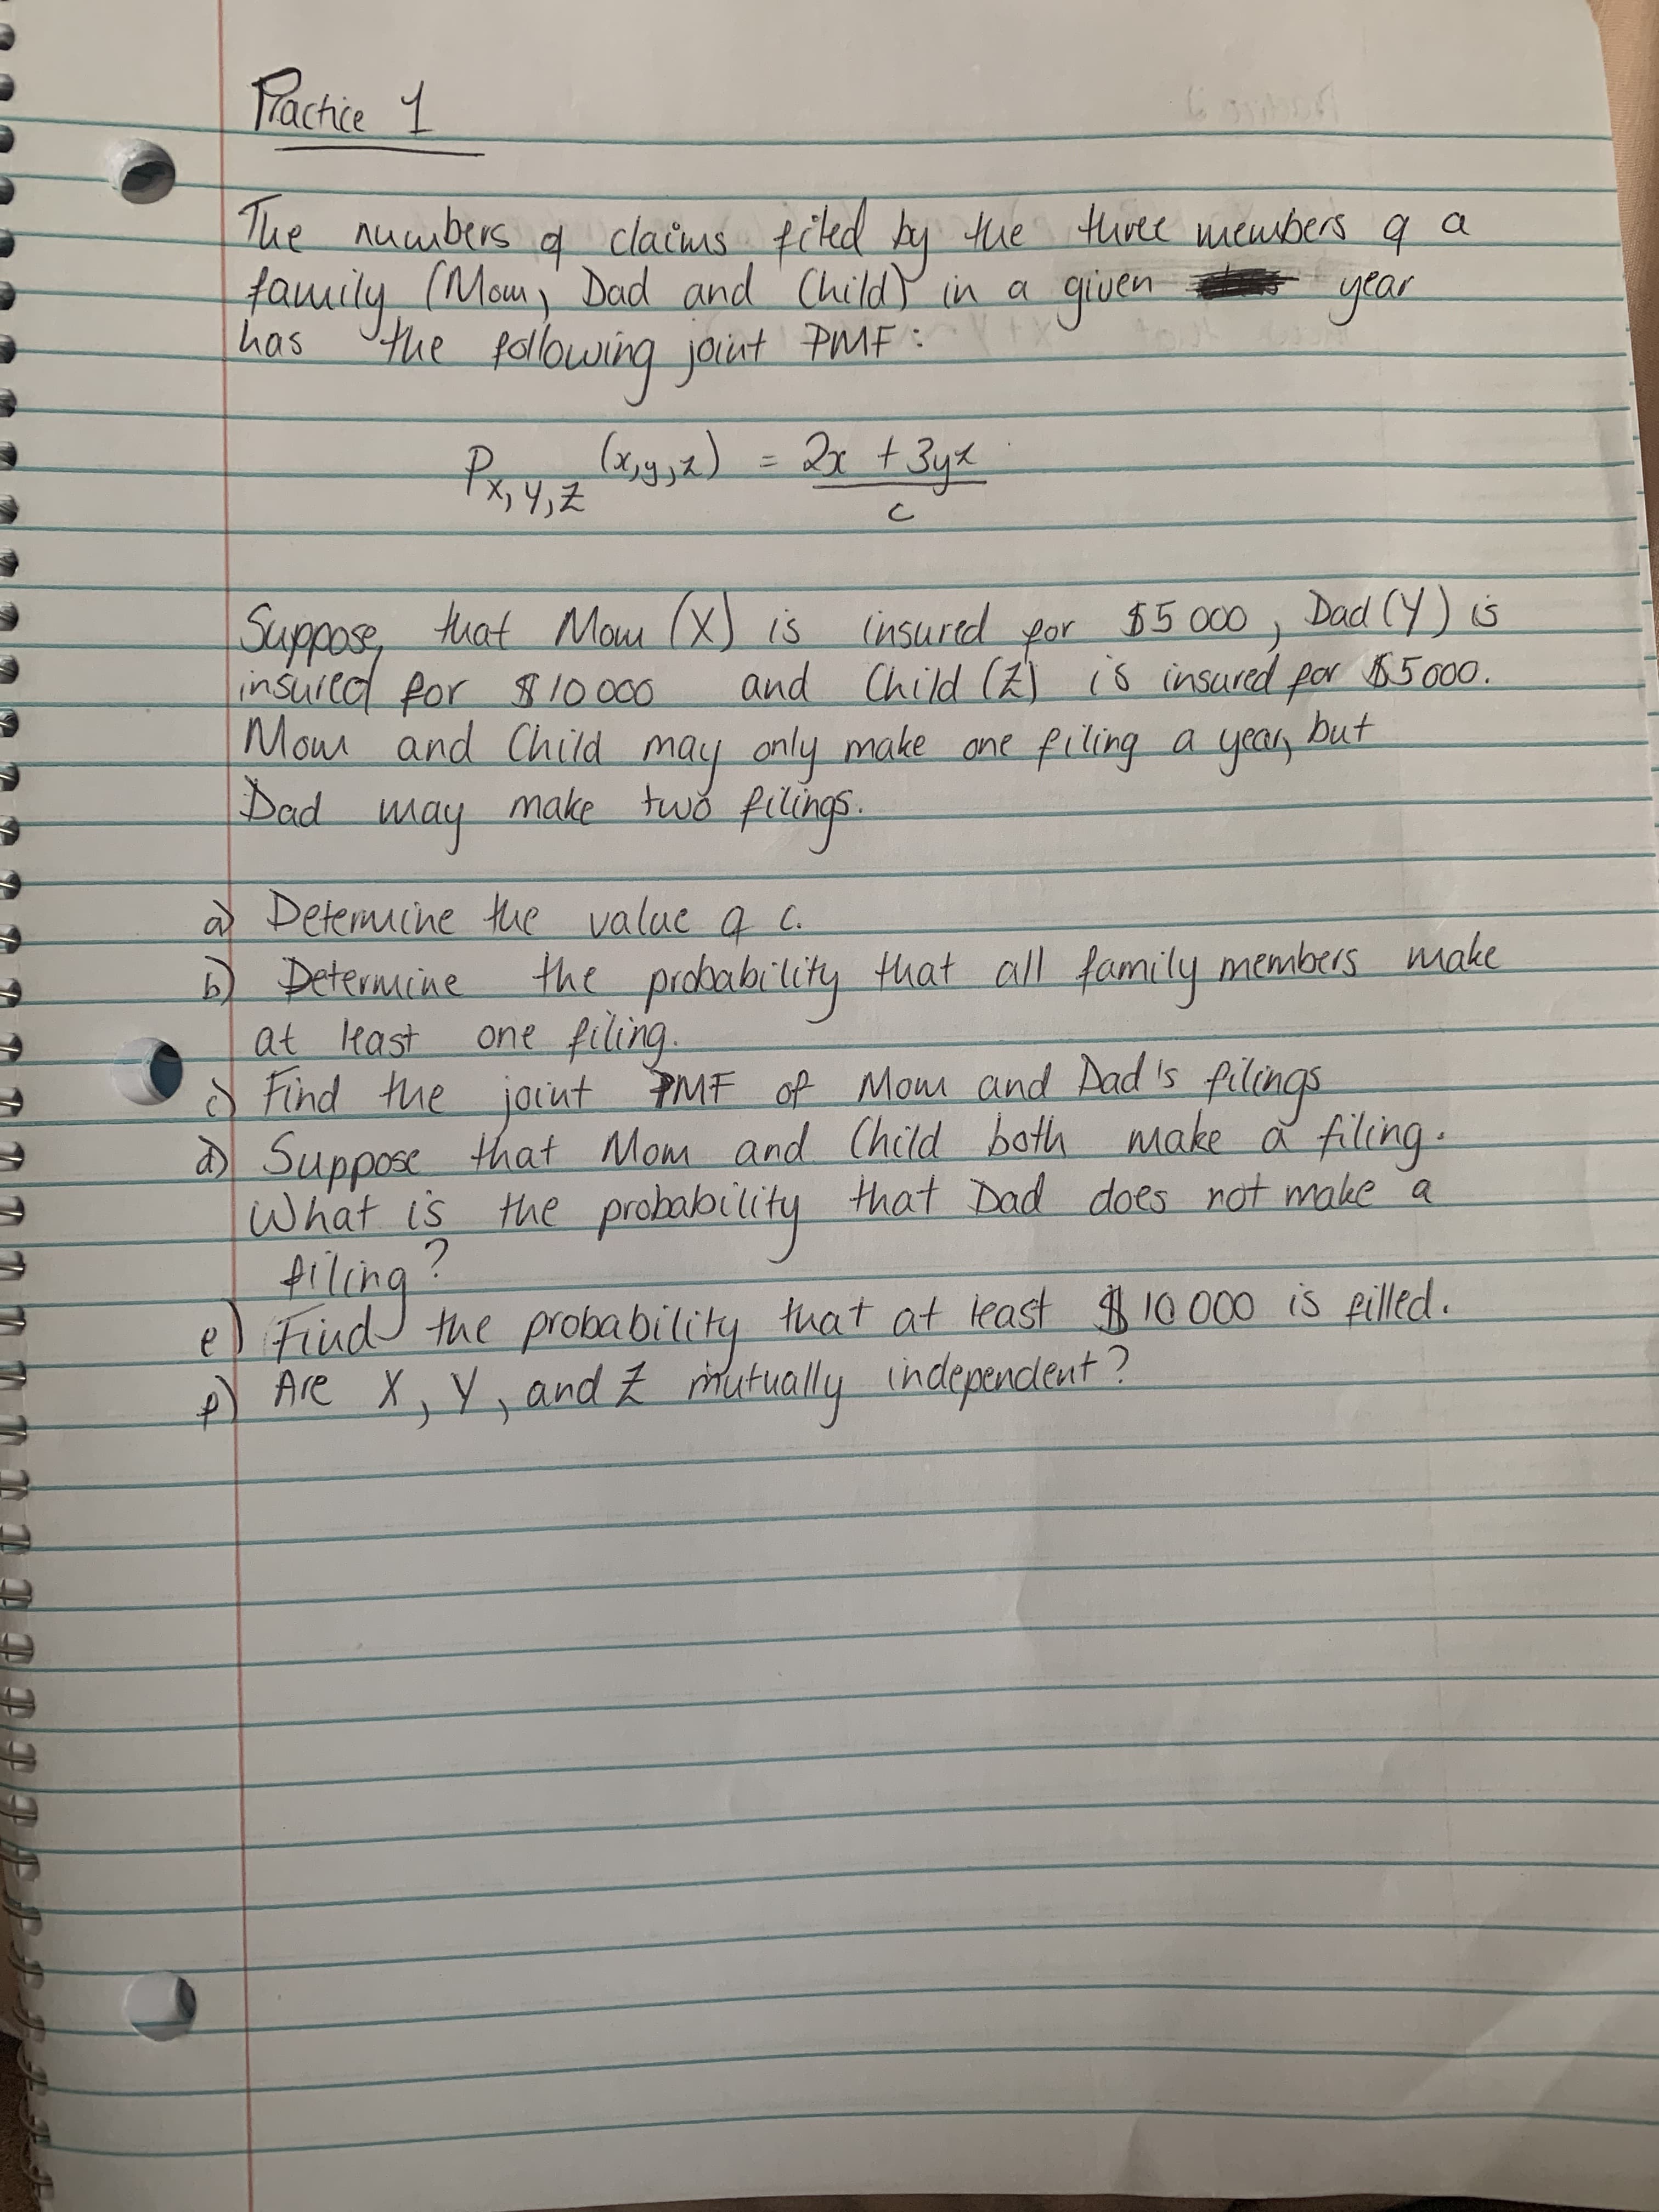 Practice 1
The numbers of claims filed by the three members of a
family (Mom, Dad and Child) in a given year
has the following joint PMF:
P_{X,Y,Z} (x,y,z) = \frac{2x + 3yz}{c}
Suppose that Mom (X) is insured for $5000, Dad (Y) is
insured for $10000 and Child (Z) is insured for $5000.
Mom and Child may only make one filing a year, but
Dad may make two filings.
a) Determine the value of c.
b) Determine the probability that all family members make
at least one filing.
c) Find the joint PMF of Mom and Dad's filings
d) Suppose that Mom and Child both make a filing.
What is the probability that Dad does not make a
filing?
e) Find the probability that at least $10000 is filled.
f) Are X, Y, and Z mutually independent?